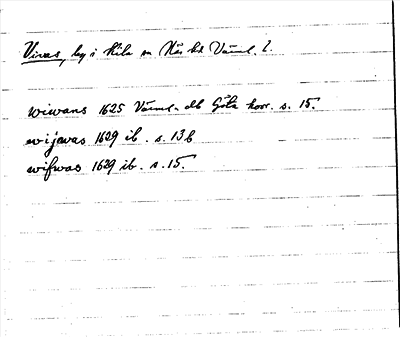 Vivas, by i Kila sn Näs hd Värml. l.
wiwans 1625 Värml. dlb Göta korr. s. 15.
wijwas 1629 ib. s. 13b
wifwas 1629 ib. s. 15.